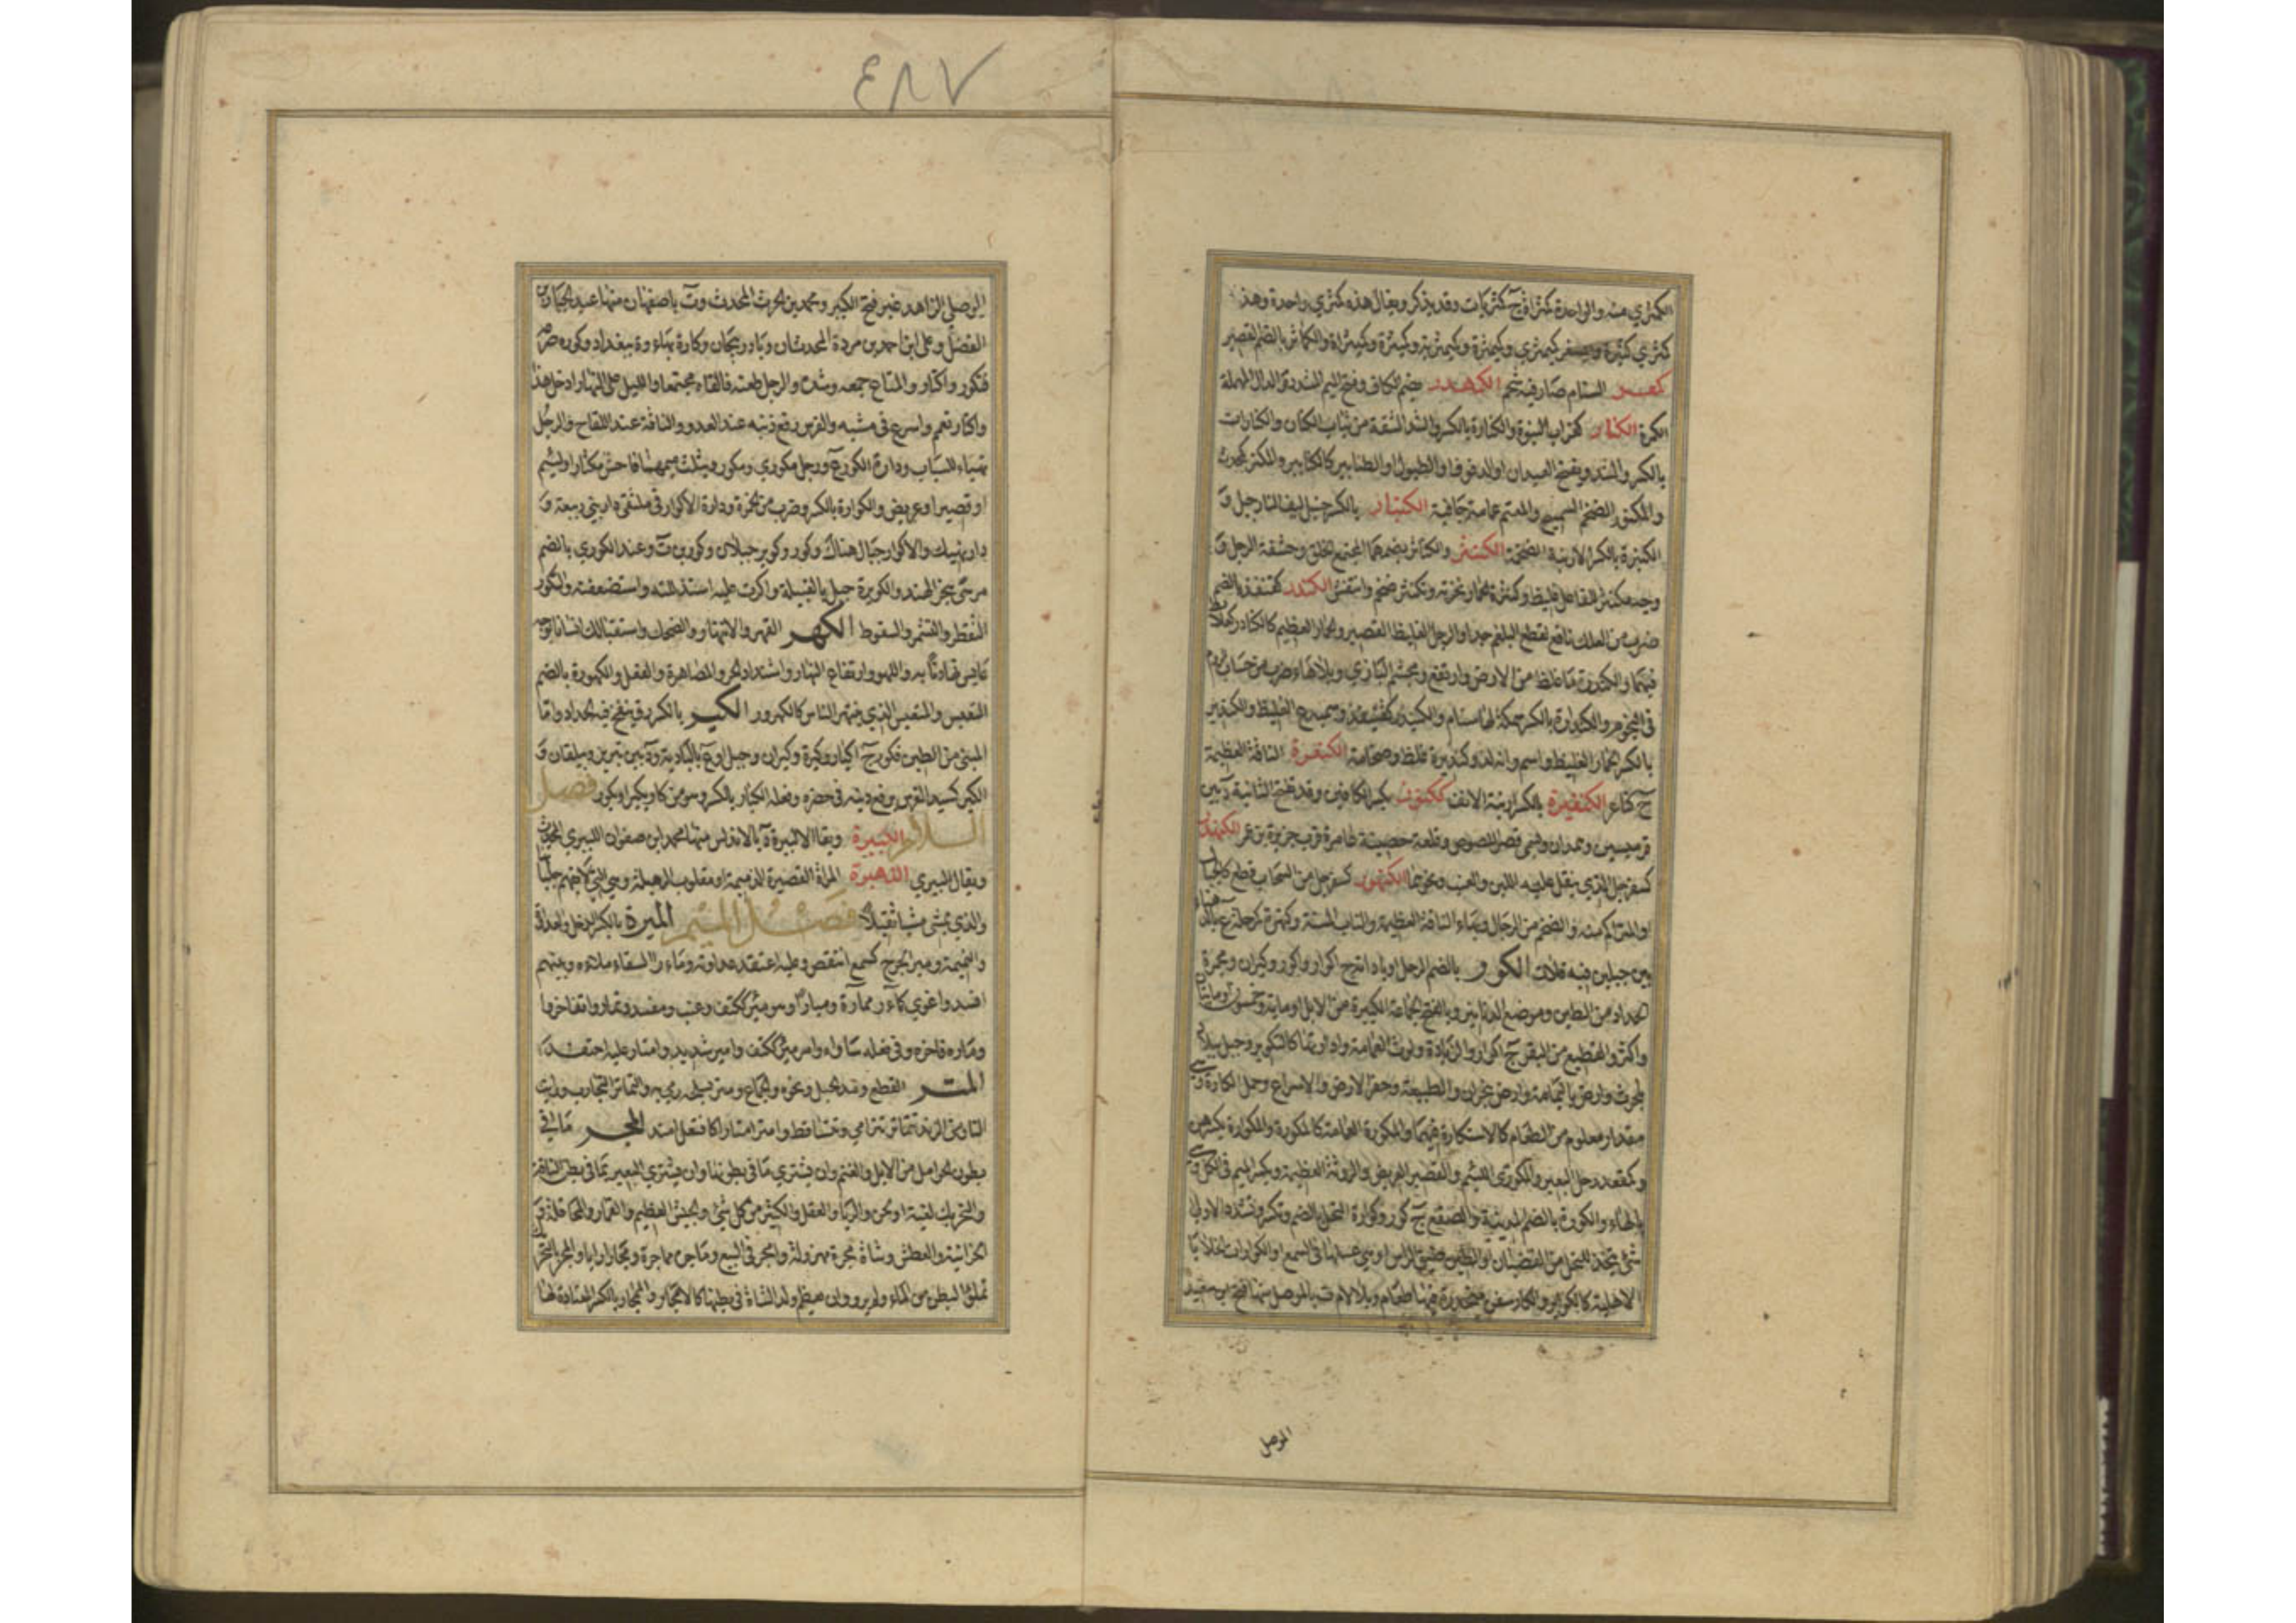 الكمثري منه والواحدة كمثراة ج كمثريات وقد يذكر ويقال هذه كمثري واحدة وهذه
كمثري كثيرة ويصغر كيمثرة وكميثرة والكماثر بالضم القصير
كمعر السنام صار فيه شحم الكمهدر بضم الكاف وفتح الميم المشددة والدال المهملة
الكمرة الكنار كغراب النبق والكنارة بالكسر والشد الشقة من ثياب الكتان والكنارات
بالكسر والشد ويفتح العيدان او الدفوف او الطبول او الطنابير كالكنانير والمكنر كمحدث
والمكنور الضخم السمج والمعتم عمامة جافية الكنبار بالكسر حبل ليف النارجيل و
الكنبرة بالكسر الارنبة الضخمة الكنثر والكناثر بضمهما المجتمع الخلق وحشفة الرجل و
وجه مكنثر الفاعل غليظ وكنثرة الحمار نخرته وتكنثر ضخم وانتفش الكندر كقنفذ بالضم
ضرب من العلك نافع لقطع البلغم جدا والرجل الغليظ القصير والحمار العظيم كالكنادر كعلابط
فيهما والكندرة ما غلظ من الارض وارتفع ومجثم البازي وبلا هاء ضرب من حساب الروم
في النجوم والكندارة بالكسر سمكة لها سنام والكنيدر كقنيفذ وسميدع الغليظ والكندير
بالكسر الحمار الغليظ واسم وانه لذو كنديرة غلظ وضخامة الكنعرة الناقة العظيمة
ج كناعر الكنفيرة بالكسر ارنبة الانف ككنور بكسر الكافين وقد تفتح الثانية د بين
قرميسين وهمدان وتسمى قصر اللصوص وقلعة حصينة عامرة قرب جزيرة بن عمر الكنهدر
كسفرجل الذي ينقل عليه اللبن والعنب ونحوهما الكنهور كسفرجل من السحاب قطع كالجبال
او المتراكم منه والضخم من الرجال وبهاء الناقة العظيمة والناب المسنة وكنهرة كمرحلة ع بالدهناء
بين جبلين فيه قلات الكور بالضم الرحل او باداته ج اكوار واكور وكيران ومجمرة
الحداد من الطين وموضع الزنابير وبالفتح الجماعة الكثيرة من الابل او مائة وخمسون او مائتان
واكثر والقطيع من البقر ج اكوار والزيادة ولوث العمامة وادارتها كالتكوير وجبل ببلاد
بلحرث وارض باليمامة وارض بنجران والطبيعة وحفر الارض والاسراع وحمل الكارة وهي
مقدار معلوم من الطعام كالاستكارة فيهما والمكورة العمامة كالمكورة والمكوارة بكسرهن
وكمقعد رحل البعير والمكورى اللئيم والقصير العريض والروثة العظيمة وبكسر الميم في الكل وهي
بالهاء والكورة بالضم المدينة والصقع ج كور وكوارة النحل بالضم وتكسر وتشدد الاولى
شئ يتخذ للنحل من القضبان او الطين ضيق الراس او هي عسلها في الشمع او الكوارات الخلايا
الاهلية كالكوائر والكار سفن منحدرة فيها طعام وبلا لام ة بالموصل منها فتح بن سعيد
الموصل
٤٨٧
الموصلي الزاهد غير فتح الكبير ومحمد بن الحرث المحدث وة باصفهان منها عبد الجبار بن
الفضل وعلى ابن احمد بن مردة المحدثان وة باذربيجان وكارة بهاء وة ببغداد وكوره صرعه
فتكور واكتار والمتاع جمعه وشده والرجل طعنه فالقاه مجتمعا والليل على النهار ادخل هذا
واكتار تعمم واسرع في مشيه والفرس رفع ذنبه عند العدو والناقة عند اللقاح والرجل
تهياء للسباب ودارة الكور ع ورجل مكورى ومكور ويثلث ميمهما فاحش مكثار او لئيم
او قصير او عريض والكوارة بالكسر وضرب من الخمرة ودارة الاكوار في ملتقى دار بنى ربيعة و
دار نهيك والاكوار جبال هناك وكور وكوير جبلان وكورين ة وعند الكورى بالضم
مرسى ببحر الهند والكويرة جبل بالقبلية واكرت عليه استذللته واستضعفته والتكور
التقطر والتشمر والسقوط الكهر القهر والانتهار والضحك واستقبالك انسانا بوجه
عابس تهاونا به واللهو وارتفاع النهار واشتداد الحر والمصاهرة والفعل والكهرورة بالضم
التعبس والمتعبس الذي ينتهر الناس كالكهرور الكير بالكسر زق ينفخ فيه الحداد واما
المبنى من الطين فكور ج اكيار وكيرة وكيران وجبل وع بالبادية ود بين تبريز وبيلقان و
الكير كسيد الفرس يرفع ذنبه في حضره وفعله الكيار بالكسر وهو من كار يكير او يكور فصل
اللام اللبيرة ويقال الالبيرة د بالاندلس منها محمد ابن صفوان اللبيري المحدث
ويقال البيري اللهبرة المراة القصيرة الدميمة او مقلوب الرهبلة وهي التي لا تفهم جلباتها
والذي يمشى مشيا ثقيلا فصل الميم المئرة بالكسر الذحل والعداوة
والنميمة ومئر الجرح كسمع انتقض وعليه اعتقد عداوته وماءر السقاء ملاءه وبينهم
افسد واغرى كماءر مماءرة ومئارا وهو مئر ككتف وعنب ومفسد وتماءروا تفاخروا
وماءره فاخره وفي فعله ساواه وامر مئر ككتف وامير شديد وامتار عليه احتقد
المتر القطع ومد الحبل ونحوه والجماع ومتر بسلحه رمى به والتماتر التجاذب ورايت
النار من الزند تتماتر تترامى وتتساقط وامتر امتارا كافتعل امتد المجر ما في
بطون الحوامل من الابل والغنم وان يشترى ما في بطونها وان يشترى البعير بما في بطن الناقة
والتحريك لغية او لحن والربا والعقل والكثير من كل شئ والجيش العظيم والقمار والمحاقلة و
المزابنة والعطش وشاة مجرة مهزولة وامجر في البيع وماجره مماجرة ومجارا رابا والمجر بالتحريك
تملؤ البطن من الماء ولم يرو وان يعظم ولد الشاة في بطنها كالامجار والممجار بالكسر المعتادة لها